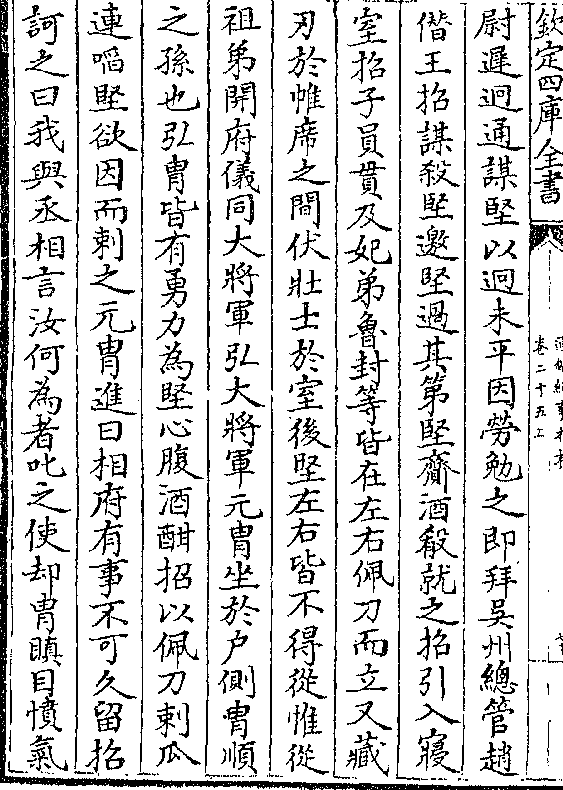 欽定四庫全書
卷二十五上
尉遲迥通謀堅以迥未平因勞勉之即拜吳州總管趙
僭王招謀殺堅邀堅過其第堅齎酒殽就之招引入寢
室招子員貫及妃弟魯封等皆在左右佩刀而立又藏
刃於帷席之間伏壯士於室後堅左右皆不得從惟從
祖弟開府儀同大將軍弘大將軍元胄坐於户側胄順
之孫也弘胄皆有勇力為堅心腹酒酣招以佩刀刺瓜
連啗堅欲因而刺之元胄進曰相府有事不可久留招
訶之曰我與丞相言汝何為者叱之使却胄瞋目憤氣